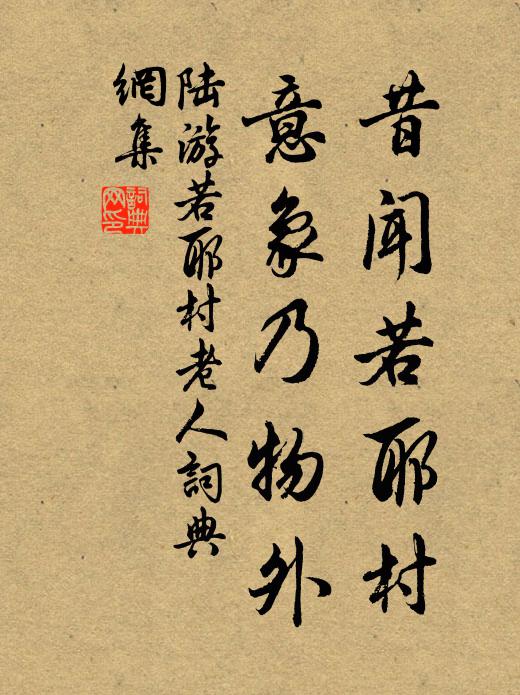 昔闻若耶村
意象乃物外
陆游若耶村老人詞典
網集
詞典網印